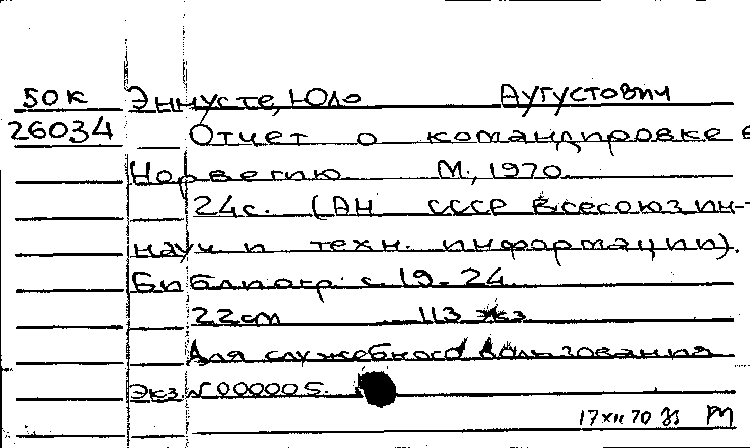 50к Эннусте, Юло Аугустович
26034 Отчет о командировке в
Норвегию. М., 1970.
24с. (АН СССР Всесоюз ин-т
науч и техн. информации).
Библиогр: с. 19-24.
22см 113 экз
Для служебного пользования
Экз N 000005.
17 XII 70